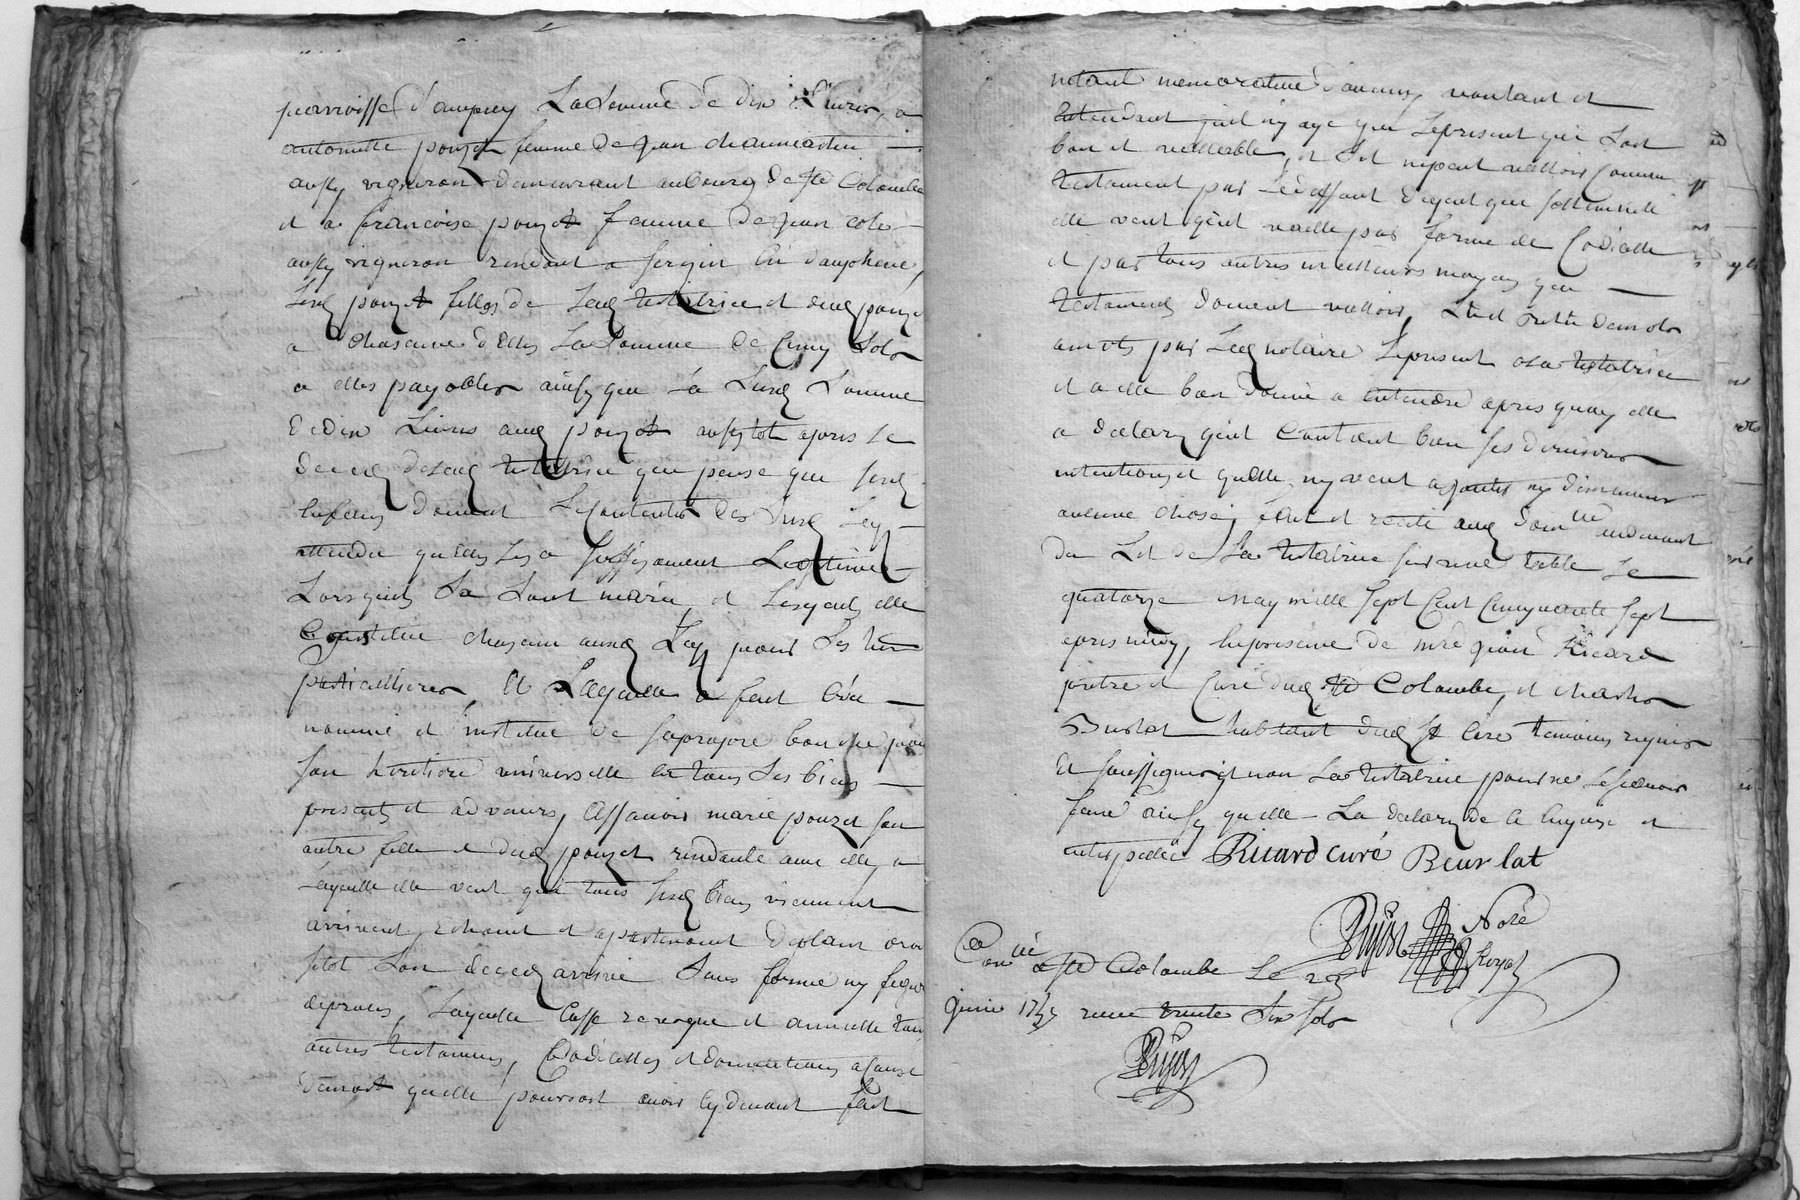 parroisse d'ampuy La somme de dix Livres, a
antoinette pouzet femme de jean
aussy vigneron demeurant aubourg de Ste Colombe
et a francoise pouzet femme de jean
aussy vigneron residant a en dauphiné,
Lesd pouzet filles de Lad testatrice et dud pouzet
a chascune d'Elles La somme de Cinq sols
a elles payables ainsy que La Susd somme
de dix Livres aud pouzet aussytot apres le
deced de Lad testatrice qui pense que sesd
Enfens doivent se contenter des susd Leg
attendu qu'Elles Les a suffisament Legitimé
Lorsquils Se sont marié, et Lesquels elle
institue chascun aud Leg pour ses her
particulliers, Et Laquelle a fait Crée
nommé et institue de sa propre bouche pour
son heritiere universelle En tous ses biens
presents et advenirs, assavoir marie pouzet son
autre fille et dud pouzet residante avec elle, a
Laquelle elle veut que tous sesd biens viennent
arrivent, Echoient et apartiennent
sitot son deced arrivé sans forme ny figure
de proces, Laquelle Casse revoque et annulle tous
autres testamens, Codicilles et donnations a cause
de mort qu'elle pourroit avoir cy devant fait
nétant memorative d'aucuns, voulant et
Entendant quil ny aye que Le present qui Soit
bon et vallable, et s'il ne peut valloir Comme
testament par Le deffaut de quelque sollemnité
elle veut quil vaille par forme de Codicille
et par tous autres meilleurs moyens que
testamens doivent valloir, Lû et
par Led notaire Le present a la testatrice
et a elle bien donné a entendre apres quoy elle
a declaré quil Contient bien ses dernieres
intentions et quelle ny veut ajouter ny diminuer
aucune chose, fait et recité aud dom lle audevant
du Lit de La testatrice sur une table Le
quatorze may mille sept Cent Cinquante sept
apres midy, En presence de mre Ricard
pretre et Curé dud Ste Colombe, et
habitant dud St temoins requis
Et soussignés et non La testatrice pour ne Le scavoir
faire ainsy quelle La declaré de ce Enquise et
interpellée Ricard curé Beurlat
Nore
Royal
Conlé a Ste Colombe Le
1757 receu trente six sols